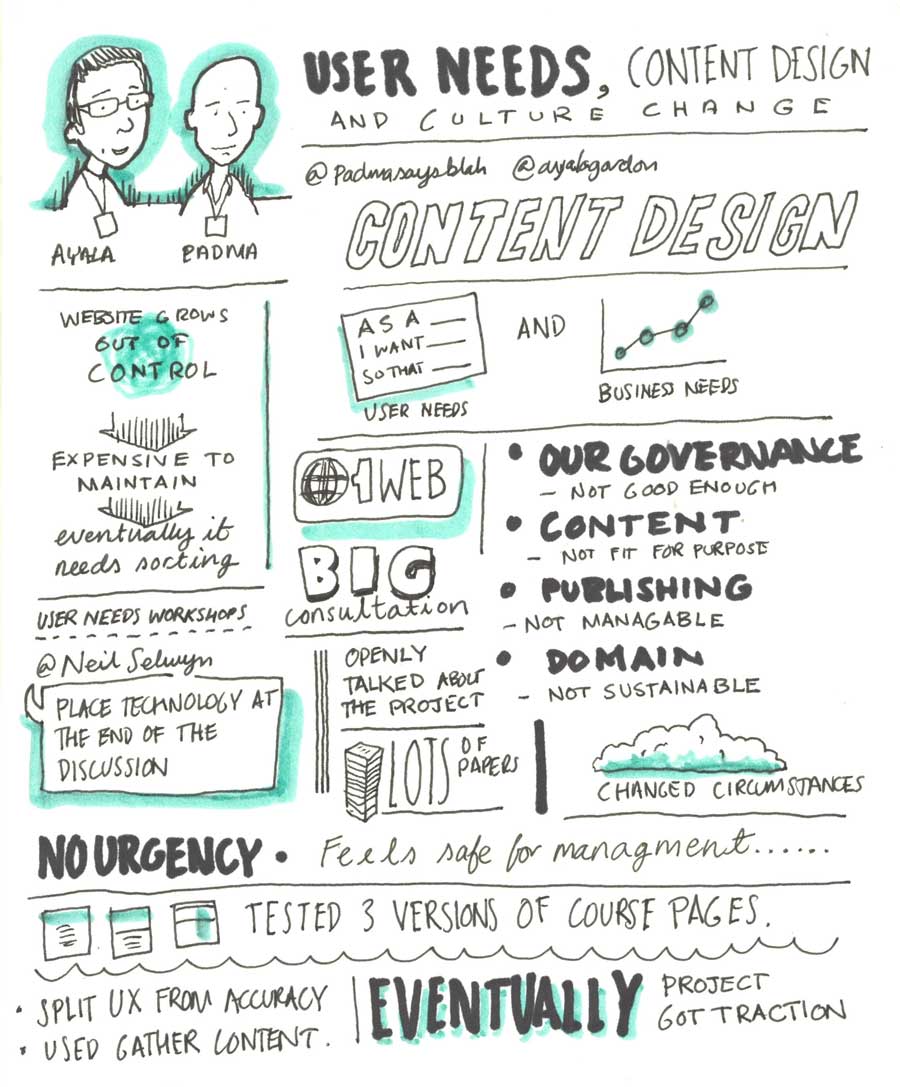 USER NEEDS, CONTENT DESIGN
AND CULTURE CHANGE
@Padmasaysblah @ayalagordon
AYALA
PADMA
CONTENT DESIGN
WEBSITE GROWS
OUT OF
CONTROL
EXPENSIVE TO
MAINTAIN
eventually it
needs sorting
AS A
I WANT
SO THAT
USER NEEDS
AND
BUSINESS NEEDS
1WEB
BIG
consultation
• OUR GOVERNANCE
- NOT GOOD ENOUGH
• CONTENT
- NOT FIT FOR PURPOSE
• PUBLISHING
- NOT MANAGABLE
• DOMAIN
- NOT SUSTAINABLE
USER NEEDS WORKSHOPS
@Neil Selwyn
PLACE TECHNOLOGY AT
THE END OF THE
DISCUSSION
OPENLY
TALKED ABOUT
THE PROJECT
LOTS OF
PAPERS
CHANGED CIRCUMSTANCES
NO URGENCY • Feels safe for managment......
TESTED 3 VERSIONS OF COURSE PAGES.
• SPLIT UX FROM ACCURACY
• USED GATHER CONTENT.
EVENTUALLY PROJECT
GOT TRACTION